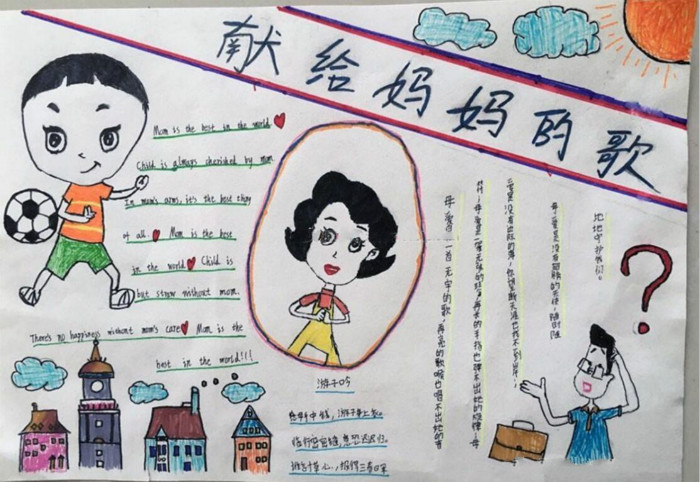 献给妈妈的歌
Mom is the best in the world
Child is always cherished by mom
In mom's arms, it's the best they
of all Mom is the best
in the world Child is
but straw without mom.
There's no happiness without mom's care Mom is the
best in the world!!!
游子吟
慈母手中线，游子身上衣。
临行密密缝，意恐迟迟归。
谁言寸草心，报得三春
母爱是一首无字的歌，再亮的歌喉也唱不出她的音
母爱是一
母爱是没有 的天使，随时随
地地守护我们。
?